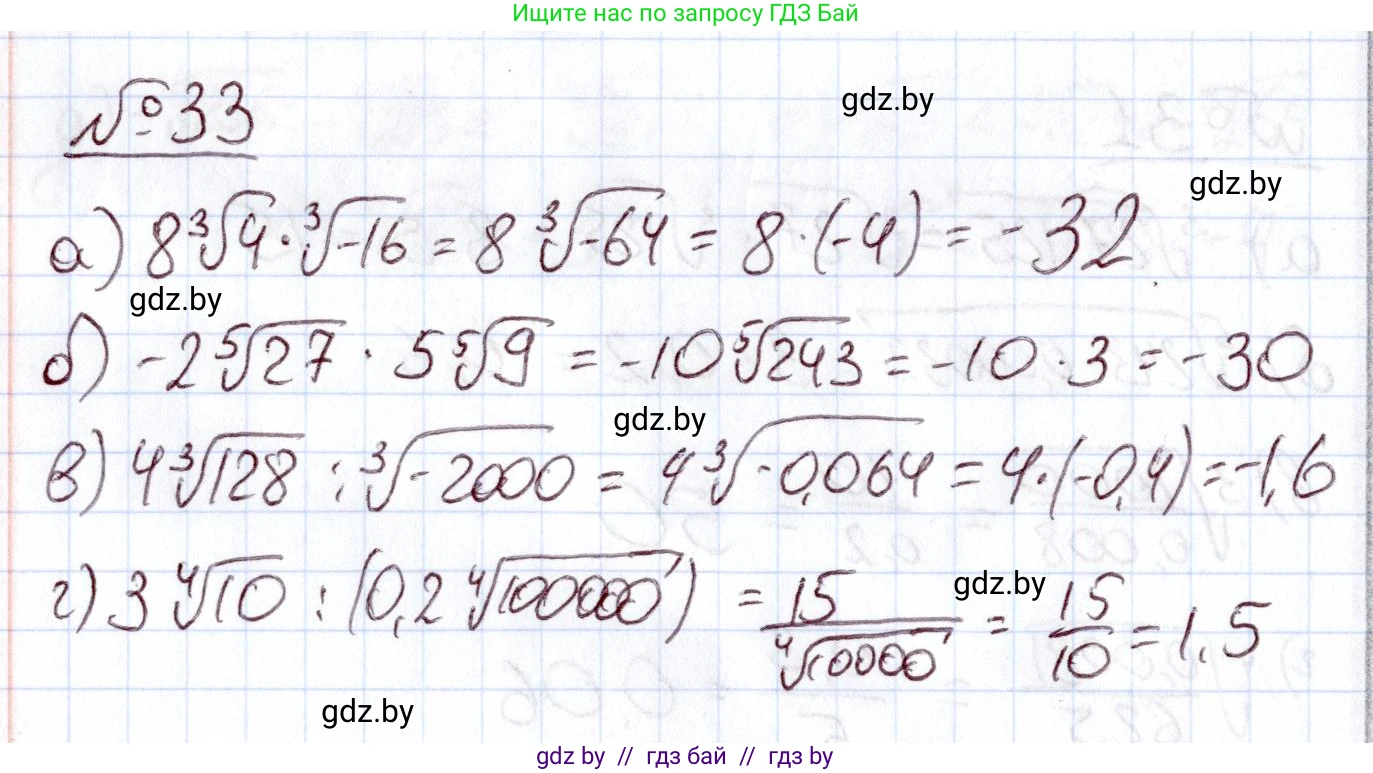 Ищите нас по запросу ГДЗ Бай
№33
gdz.by
gdz.by
а) 8∛4 · ∛-16 = 8∛-64 = 8 · (-4) = -32
gdz.by
б) -2⁵√27 · 5⁵√9 = -10⁵√243 = -10 · 3 = -30
gdz.by
в) 4∛128 : ∛-2000 = 4∛-0,064 = 4 · (-0,4) = -1,6
г) 3∜10 : (0,2∜100000) = 15/∜10000 = 15/10 = 1,5
gdz.by
gdz.by
gdz by // гдз бай // гдз by